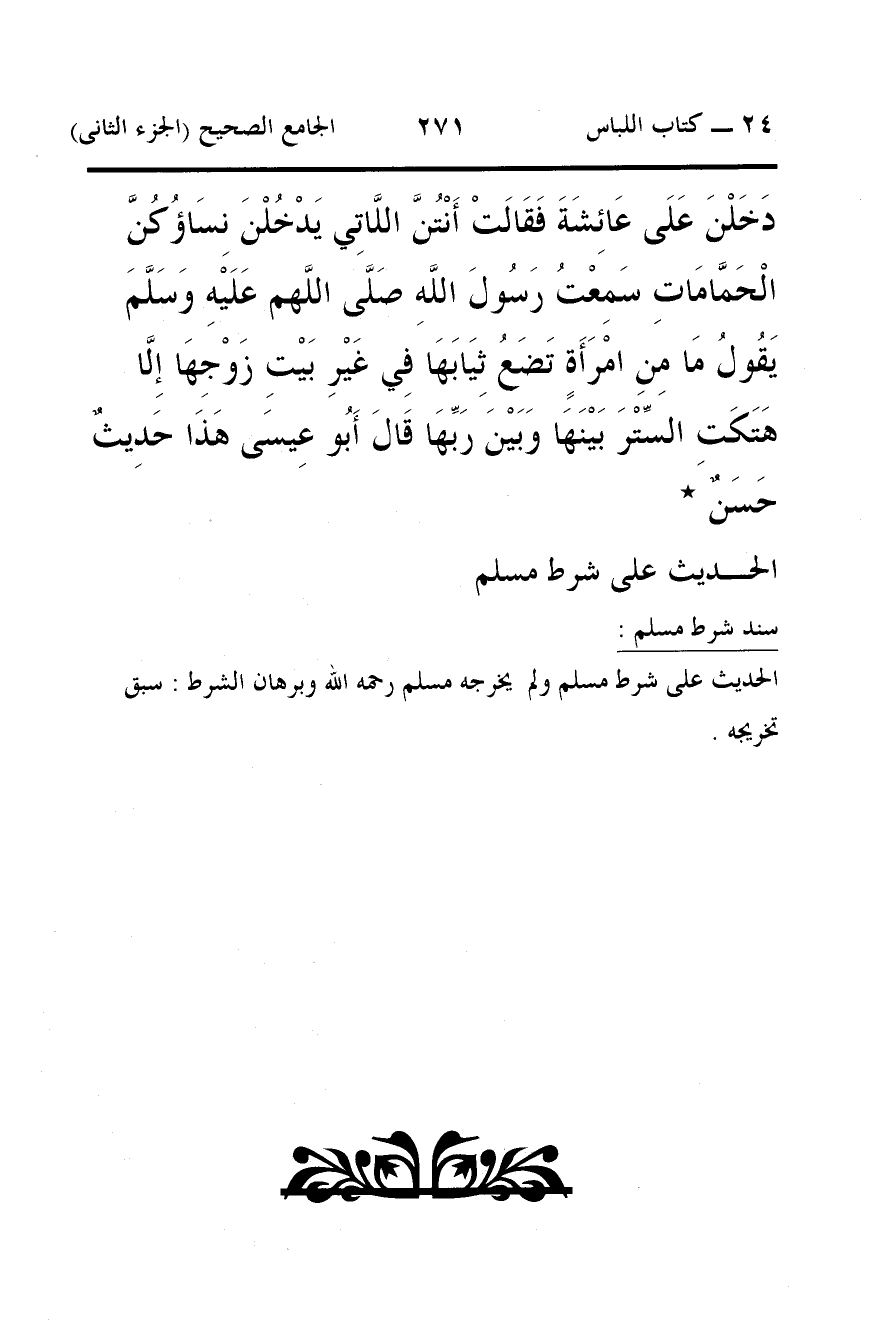 ٢٤ ـــ كتاب اللباس ٢٧١ الجامع الصحيح (الجزء الثانى)
دَخَلْنَ عَلَى عَائِشَةَ فَقَالَتْ أَنْتُنَّ اللَّاتِي يَدْخُلْنَ نِسَاؤُكُنَّ
الْحَمَّامَاتِ سَمِعْتُ رَسُولَ اللَّهِ صَلَّى اللَّهم عَلَيْهِ وَسَلَّمَ
يَقُولُ مَا مِنِ امْرَأَةٍ تَضَعُ ثِيَابَهَا فِي غَيْرِ بَيْتِ زَوْجِهَا إِلَّا
هَتَكَتِ السِّتْرَ بَيْنَهَا وَبَيْنَ رَبِّهَا قَالَ أَبُو عِيسَى هَذَا حَدِيثٌ
حَسَنٌ *
الحـــديث على شرط مسلم
سند شرط مسلم :
الحديث على شرط مسلم ولم يخرجه مسلم رحمه الله وبرهان الشرط : سبق
تخريجه .